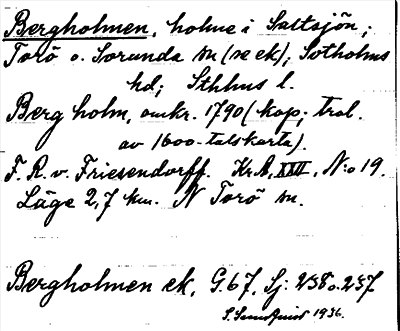 Bergholmen, holme i Saltsjön;
Torö o. Sorunda sn (se ek), Sotholms
hd; Sthlms l.
Bergholm, omkr. 1790 (kop; trol.
av 1600-talskarta).
F. R. v. Friesendorff. Kr.A, XXII, N:o 19.
Läge 2,7 km. N Torö sn.
Bergholmen ek, G. 67, Sj: 238 o. 237
1936.